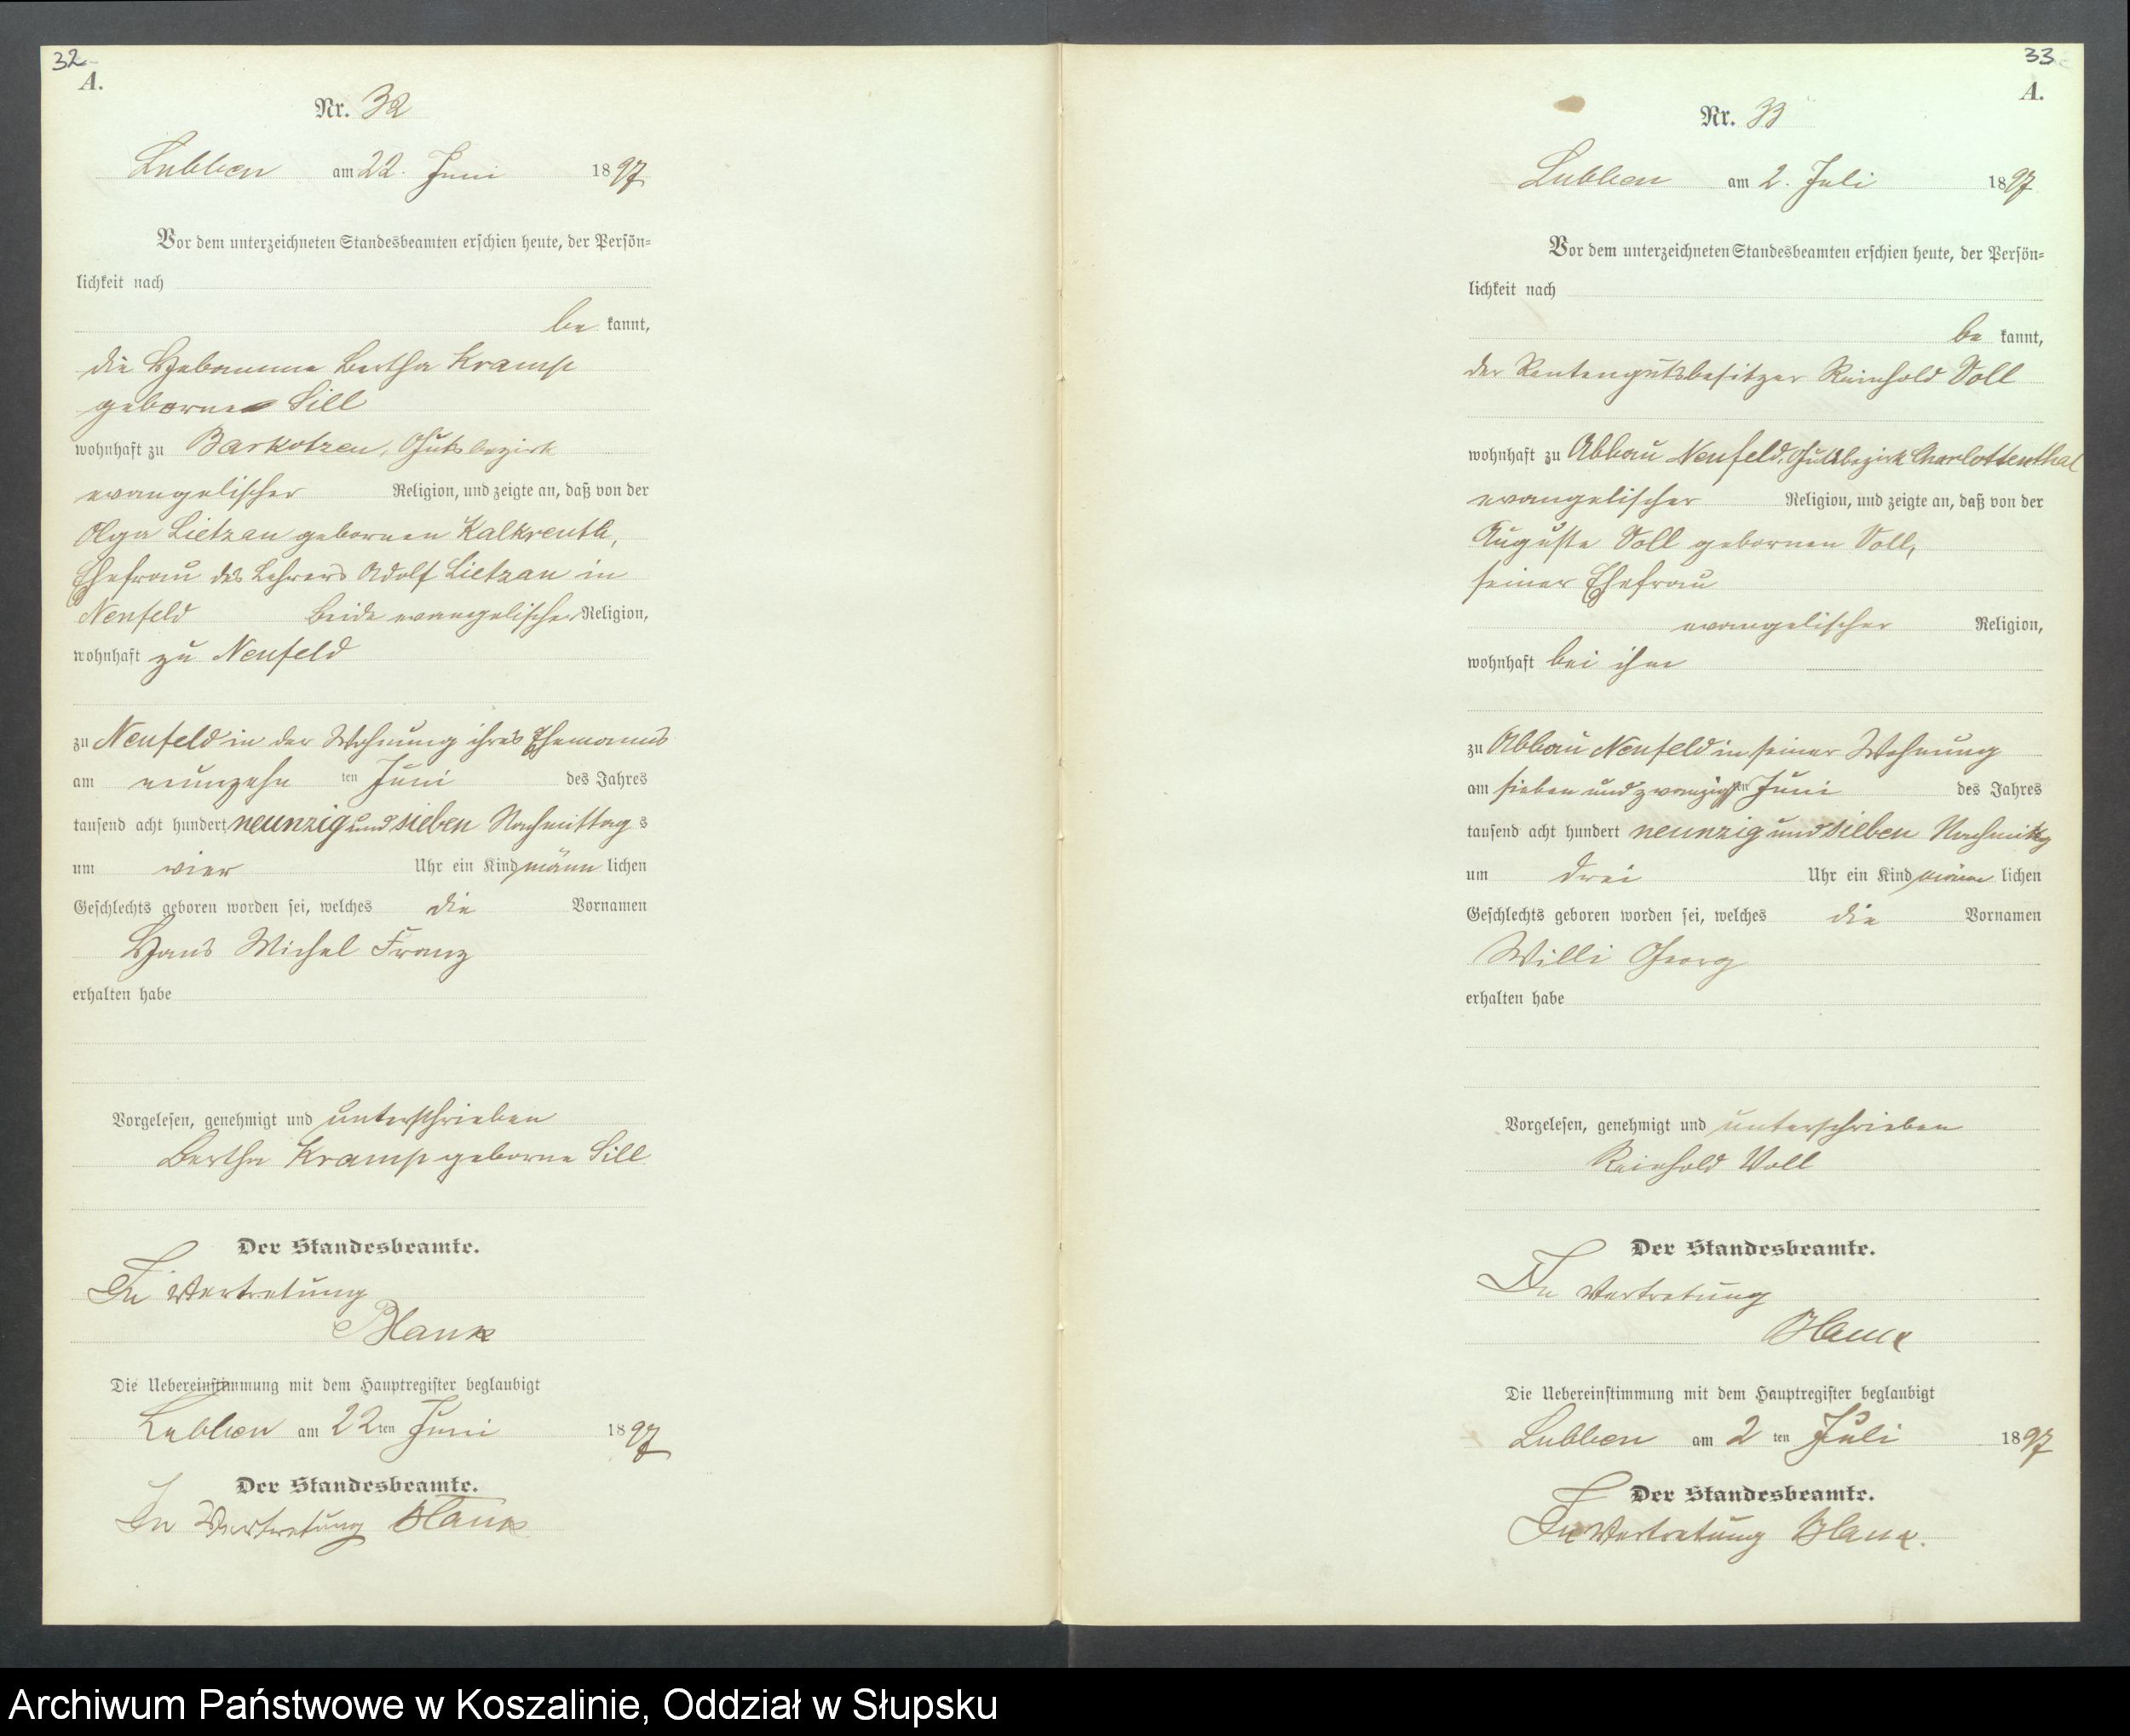 32
A.
Nr. 32
Lubben am 22. Juni 1897
Vor dem unterzeichneten Standesbeamten erschien heute, der Persön-
lichkeit nach
be kannt,
die Hebamme Bertha Kramp
geborne Sill
wohnhaft zu Barkotzen, Gutsbezirk
evangelischer Religion, und zeigte an, daß von der
Olga Lietzau gebornen Kalkreuth,
Ehefrau des Lehrers Adolf Lietzau in
Neufeld beide evangelischer Religion,
wohnhaft zu Neufeld
zu Neufeld in der Wohnung ihres Ehemanns
am neunzehn ten Juni des Jahres
tausend acht hundert neunzig und sieben Nachmittags
um vier Uhr ein Kind männlichen
Geschlechts geboren worden sei, welches die Vornamen
Hans Michel Franz
erhalten habe
Vorgelesen, genehmigt und unterschrieben
Bertha Kramp geborne Sill
Der Standesbeamte.
In Vertretung
Blank
Die Uebereinstimmung mit dem Hauptregister beglaubigt
Lubben am 22ten Juni 1897
Der Standesbeamte.
In Vertretung Blank
33
A.
Nr. 33
Lubben am 2. Juli 1897
Vor dem unterzeichneten Standesbeamten erschien heute, der Persön-
lichkeit nach
be kannt,
der Rentengutsbesitzer Reinhold Voll
wohnhaft zu Abbau Neufeld, Gutsbezirk Charlottenthal
evangelischer Religion, und zeigte an, daß von der
Auguste Voll gebornen Voll,
seiner Ehefrau
evangelischer Religion,
wohnhaft bei ihm
zu Abbau Neufeld in seiner Wohnung
am sieben und zwanzigsten Juni des Jahres
tausend acht hundert neunzig und sieben Nachmittg
um drei Uhr ein Kind männlichen
Geschlechts geboren worden sei, welches die Vornamen
Willi Georg
erhalten habe
Vorgelesen, genehmigt und unterschrieben
Reinhold Voll
Der Standesbeamte.
In Vertretung
Blank
Die Uebereinstimmung mit dem Hauptregister beglaubigt
Lubben am 2 ten Juli 1897
Der Standesbeamte.
In Vertretung Blank.
Archiwum Państwowe w Koszalinie, Oddział w Słupsku